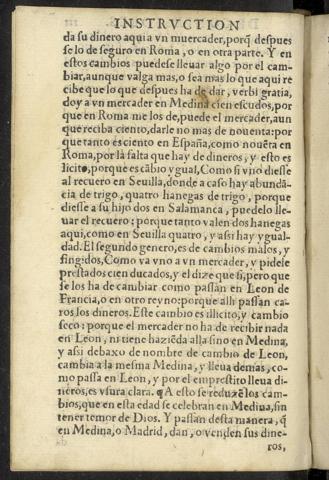 INSTRVCTION
da su dinero aqui a vn muercader, porq̃ despues
se lo de seguro en Roma, o en otra parte. Y en
estos cambios puedese lleuar algo por el cam-
biar, aunque valga mas, o sea mas lo que aqui re
cibe que lo que despues ha de dar, verbi gratia,
doy a vn mercader en Medina cien escudos, por
que en Roma me los de, puede el mercader, aun
que reciba ciento, darle no mas de nouenta: por
que tanto es ciento en España, como nouẽta en
Roma, por la falta que hay de dineros, y esto es
licito, porque es cãbio ygual, Como si vno diesse
al recuero en Seuilla, donde a caso hay abundã-
cia de trigo, quatro hanegas de trigo, porque
diesse a su hijo dos en Salamanca, puedelo lle-
uar el recuero: porque tanto valen dos hanegas
aqui, como en Seuilla quatro, y assi hay ygual-
dad. El segundo genero, es de cambios malos, y
fingidos, Como va vno a vn mercader, y pidese
prestados cien ducados, y el dize que si, pero que
se los ha de cambiar como passan en Leon de
Francia, o en otro reyno: porque alli passan ca-
ros los dineros. Este cambio es illicito, y cambio
seco: porque el mercader no ha de recibir nada
en Leon, ni tiene haziẽda alla sino en Medina,
y assi debaxo de nombre de cambio de Leon,
cambia a la mesma Medina, y lleua demas, co-
mo passa en Leon, y por el emprestito lleua di-
neros, es vsura clara. ¶ A esto se reduzẽ los cam-
bios, que en esta edad se celebran en Medina, sin
tener temor de Dios. Y passan desta manera, q̃
en Medina, o Madrid, dan, o venden sus dine-
ros,